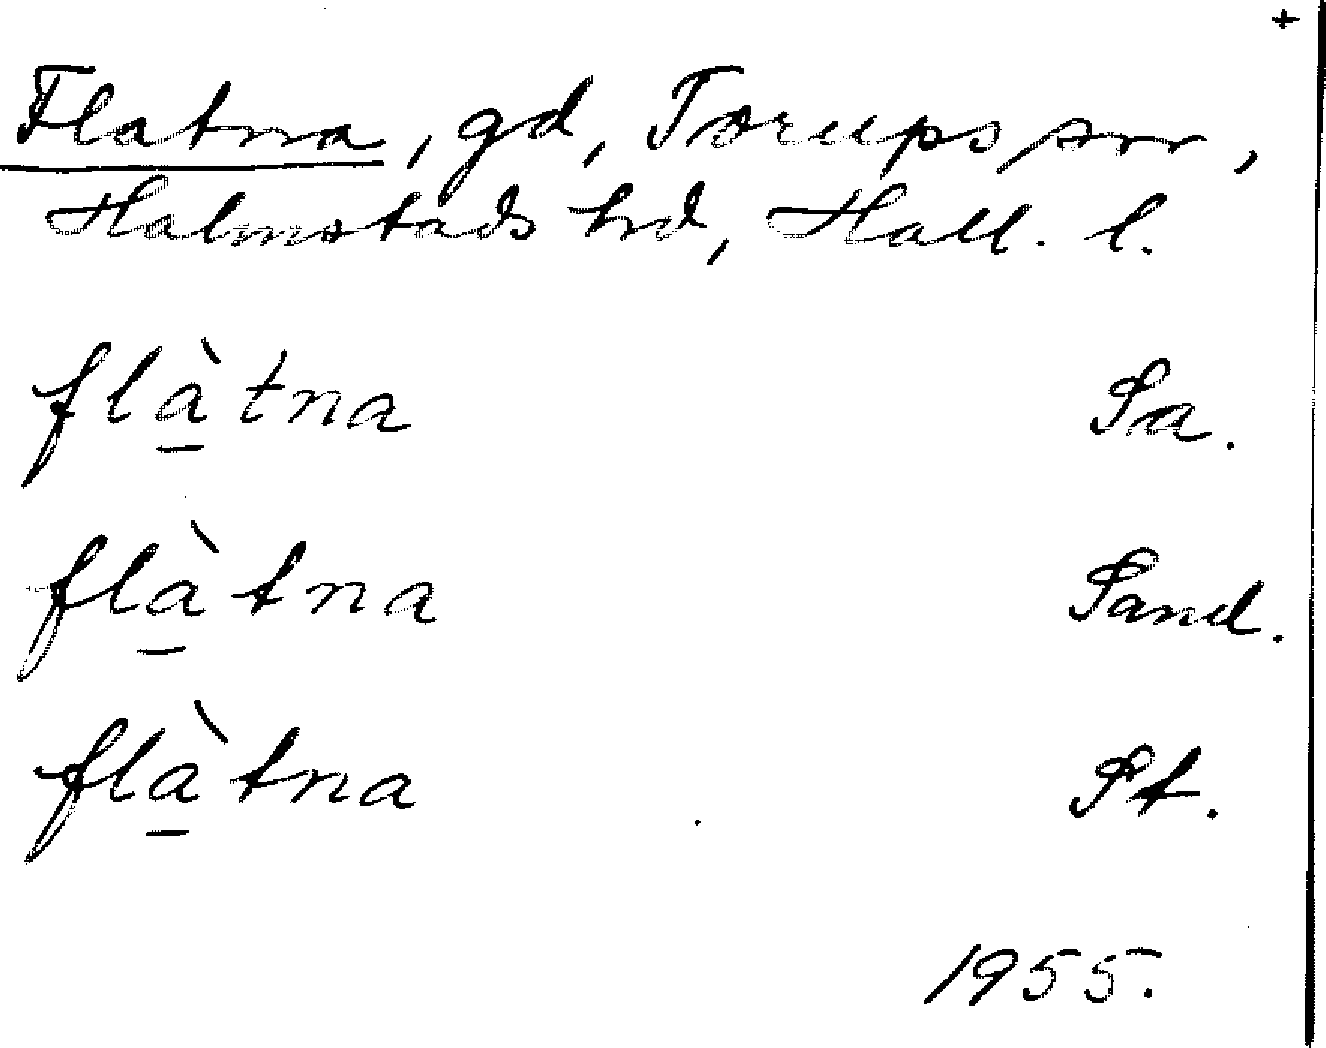 +
Flatna, gd, Torups snr,
Halmstads hd, Hall. l.
flà̱tna Sa.
flà̱tna Sand.
flà̱tna St.
1955.